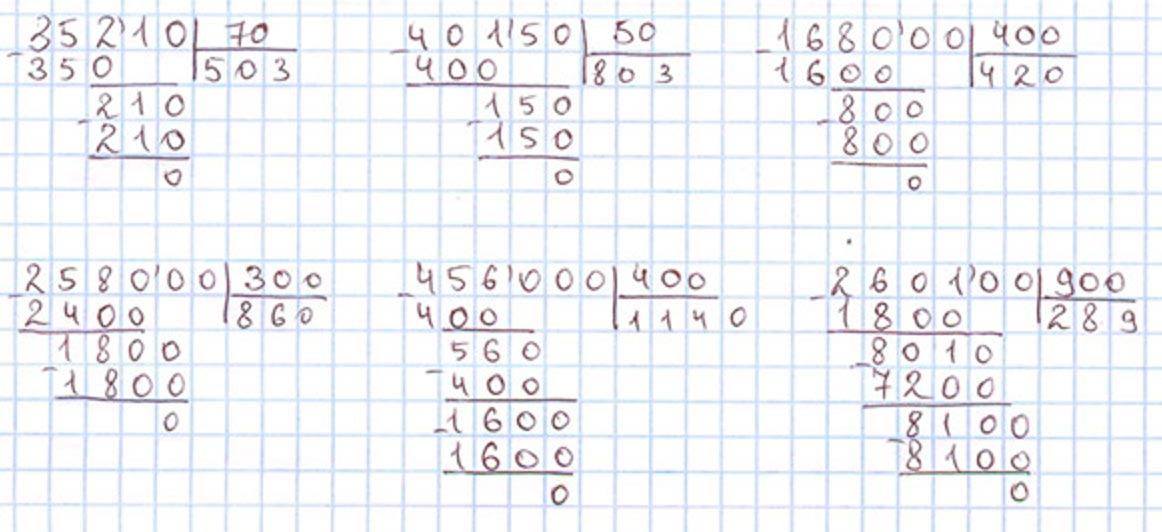 352'10 70
- 350 503
210
- 210
0
401'50 50
- 400 803
150
- 150
0
1680'00 400
- 1600 420
800
- 800
0
2580'00 300
- 2400 860
1800
- 1800
0
456'000 400
- 400 1140
560
- 400
1600
- 1600
0
2601'00 900
- 1800 289
8010
- 7200
8100
- 8100
0